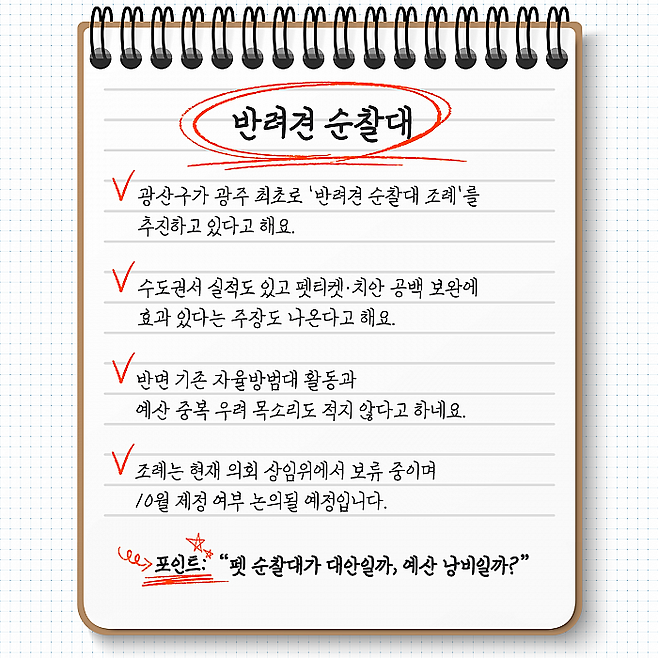 반려견 순찰대
광산구가 광주 최초로 '반려견 순찰대 조례'를
추진하고 있다고 해요.
수도권서 실적도 있고 펫티켓·치안 공백 보완에
효과 있다는 주장도 나온다고 해요.
반면 기존 자율방범대 활동과
예산 중복 우려 목소리도 적지 않다고 하네요.
조례는 현재 의회 상임위에서 보류 중이며
10월 제정 여부 논의될 예정입니다.
포인트: “펫 순찰대가 대안일까, 예산 낭비일까?”